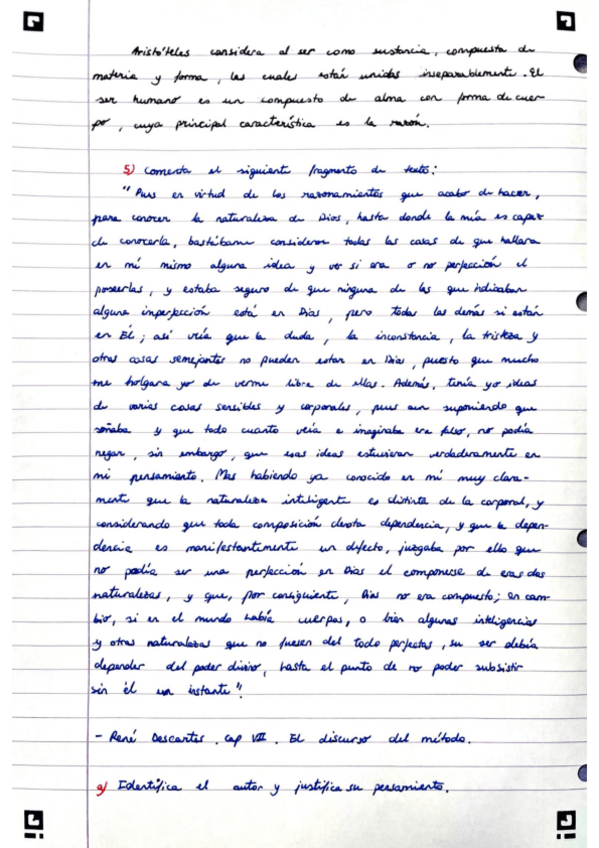 Aristóteles considera al ser como sustancia, compuesta de
materia y forma, las cuales están unidas inseparablemente. El
ser humano es un compuesto de alma con forma de cuer-
po, cuya principal característica es la razón.
5) Comenta el siguiente fragmento de texto:
"Pues en virtud de los razonamientos que acabo de hacer,
para conocer la naturaleza de Dios, hasta donde la mía es capaz
de conocerla, bastábame considerar todas las cosas de que hallara
en mí mismo alguna idea y ver si era o no perfección el
poseerlas, y estaba seguro de que ninguna de las que indicaban
alguna imperfección está en Dios, pero todas las demás si están
en Él; así veía que la duda, la inconstancia, la tristeza y
otras cosas semejantes no pueden estar en Dios, puesto que mucho
me holgara yo de verme libre de ellas. Además, tenía yo ideas
de varias cosas sensibles y corporales, pues aun suponiendo que
soñaba y que todo cuanto veía e imaginaba era falso, no podía
negar, sin embargo, que esas ideas estuvieran verdaderamente en
mi pensamiento. Mas habiendo ya conocido en mí muy clara-
mente que la naturaleza inteligente es distinta de la corporal, y
considerando que toda composición denota dependencia, y que la depen-
dencia es manifestantimente un defecto, juzgaba por ello que
no podía ser una perfección en Dios el componerse de esas dos
naturalezas, y que, por consiguiente, Dios no era compuesto; en cam-
bio, si en el mundo había cuerpos, o bien algunas inteligencias
y otras naturalezas que no fuesen del todo perfectas, su ser debía
depender del poder divino, hasta el punto de no poder subsistir
sin él un instante".
- René Descartes. Cap VII. El discurso del método.
a) Identifica el autor y justifica su pensamiento.